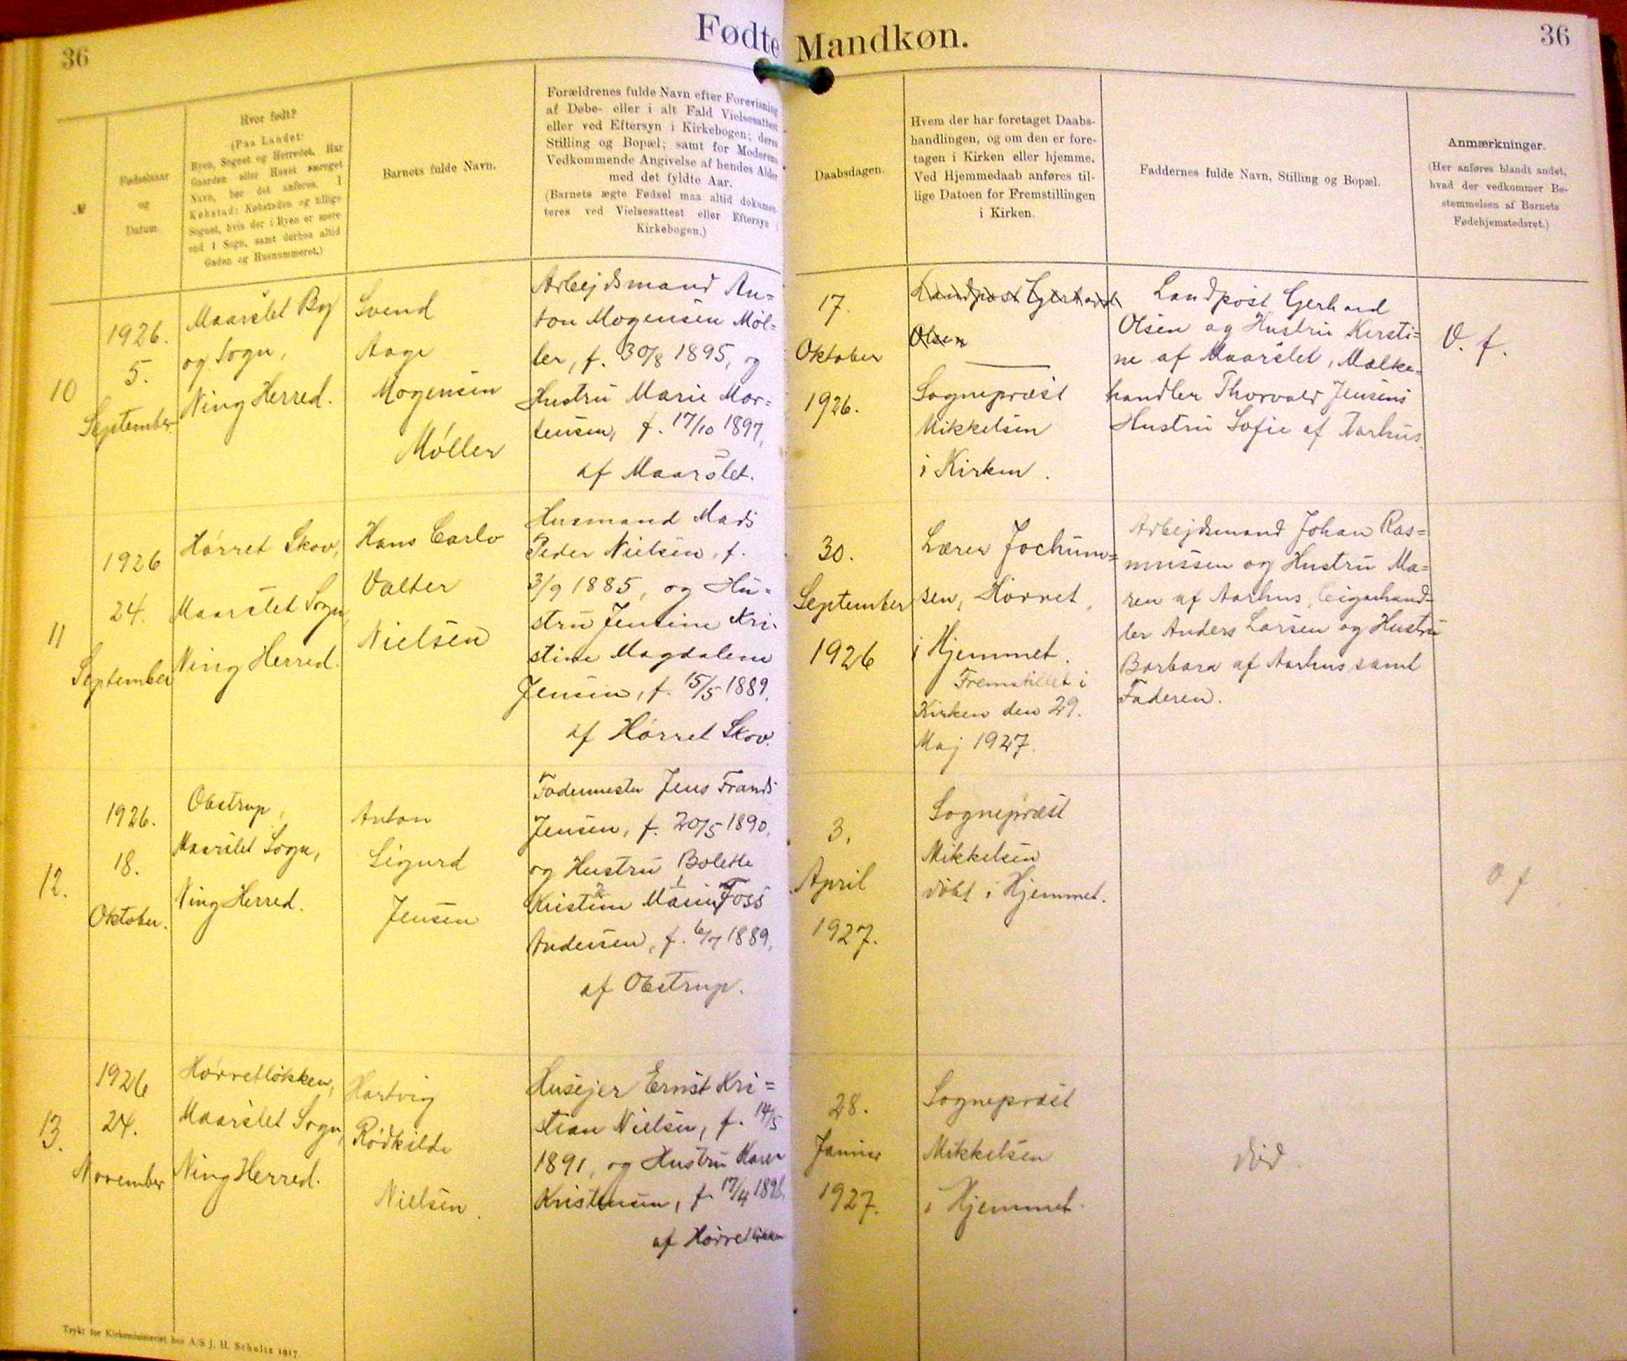 36
Fødte Mandkøn.
36
№
Fødselsaar
og
Datum.
Hvor født?
(Paa Landet:
Byen, Sognet og Herredet. Har
Gaarden eller Huset særeget
Navn, bør det anføres. I
Købstad: Købstaden og tillige
Sognet, hvis der i Byen er mere
end 1 Sogn, samt derhos altid
Gaden og Husnummeret.)
Barnets fulde Navn.
Forældrenes fulde Navn efter Forevisning
af Døbe- eller i alt Fald Vielsesattest
eller ved Eftersyn i Kirkebogen; deres
Stilling og Bopæl; samt for Moderens
Vedkommende Angivelse af hendes Alder
med det fyldte Aar.
(Barnets ægte Fødsel maa altid dokumen-
teres ved Vielsesattest eller Eftersyn i
Kirkebogen.)
Daabsdagen.
Hvem der har foretaget Daabs-
handlingen, og om den er fore-
tagen i Kirken eller hjemme.
Ved Hjemmedaab anføres til-
lige Datoen for Fremstillingen
i Kirken.
Faddernes fulde Navn, Stilling og Bopæl.
Anmærkninger.
(Her anføres blandt andet,
hvad der vedkommer Be-
stemmelsen af Barnets
Fødehjemstedsret.)
10
1926.
5.
September
Maarslet By
og Sogn,
Ning Herred.
Svend
Aage
Mogensen
Møller
Arbejdsmand An=
ton Mogensen Møl=
ler, f. 30/8 1895, og
Hustru Marie Mor=
tensen, f. 17/10 1897,
af Maarslet.
17.
Oktober
1926.
Landpost Gerhard
Olsen
Sognepræst
Mikkelsen
i Kirken.
Landpost Gerhard
Olsen og Hustru Kersti=
ne af Maarslet, Mælke=
handler Thorvald Jensens
Hustru Sofie af Aarhus.
V. f.
11
1926
24.
September
Hørret Skov,
Maarslet Sogn,
Ning Herred.
Hans Carlo
Valter
Nielsen
Husmand Mads
Peder Nielsen, f.
3/9 1885, og Hu=
stru Jensine Kri=
stine Magdalene
Jensen, f. 15/5 1889.
af Hørret Skov.
30.
September
1926
Lærer Jochum=
sen, Hørret,
i Hjemmet.
Fremstillet i
Kirken den 29.
Maj 1927.
Arbejdsmand Johan Ras=
mussen og Hustru Ma=
ren af Aarhus, Cigarhand=
ler Anders Larsen og Hustru
Barbara af Aarhus samt
Faderen.
12.
1926.
18.
Oktober.
Obstrup,
Maarslet Sogn,
Ning Herred.
Anton
Sigurd
Jensen
Fodermester Jens Frands
Jensen, f. 20/5 1890,
og Hustru Bolette
Kristine Marie Foss
Andersen, f. 6/7 1889,
af Obstrup.
3.
April
1927.
Sognepræst
Mikkelsen
døbt i Hjemmet.
13.
1926
24.
November
Hørretløkken,
Maarslet Sogn,
Ning Herred.
Hartvig
Rødkilde
Nielsen.
Husejer Ernst Kri=
stian Nielsen, f. 14/5
1891, og Hustru Karen
Kristensen, f. 17/4
af Hørretløkken
28.
Januar
1927.
Sognepræst
Mikkelsen
i Hjemmet.
død.
Trykt for Kirkeministeriet hos A/S J. H. Schultz 1917.